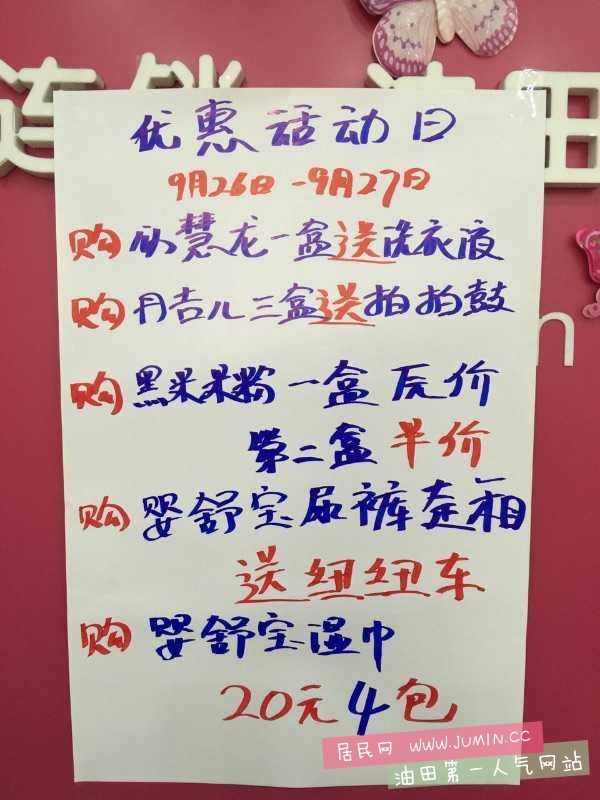 连锁 油田
优惠活动日
9月26日-9月27日
购 慧龙一盒送洗衣液
购 丹吉儿三盒送拍拍鼓
购 黑米米粉一盒原价
第二盒半价
购 婴舒宝尿裤整箱
送纽纽车
购 婴舒宝湿巾
20元4包
居民网 WWW.JUMIN.CC
油田第一人气网站